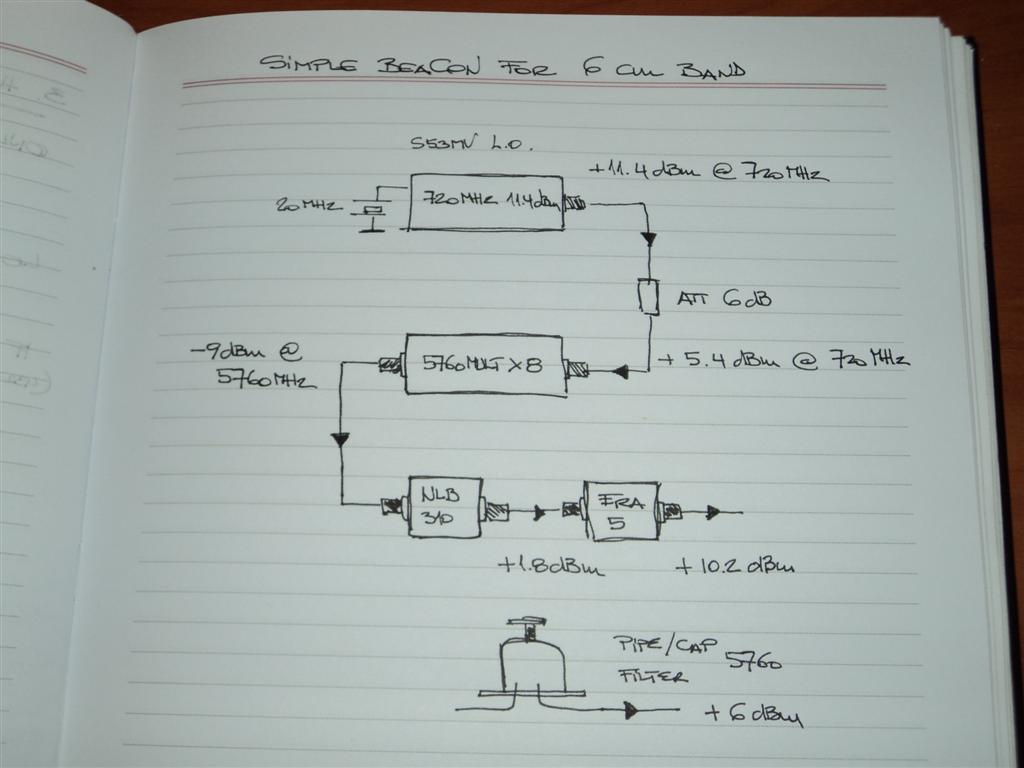 SIMPLE BEACON FOR 6 cm BAND
S53MV L.O.
+11.4 dBm @ 720 MHz
20 MHz
720 MHz 11.4 dBm
ATT 6 dB
-9 dBm @
5760 MHz
5760 MULT X 8
+ 5.4 dBm @ 720 MHz
NLB
310
ERA
5
+1.8 dBm
+ 10.2 dBm
PIPE/CAP 5760
FILTER
+ 6 dBm